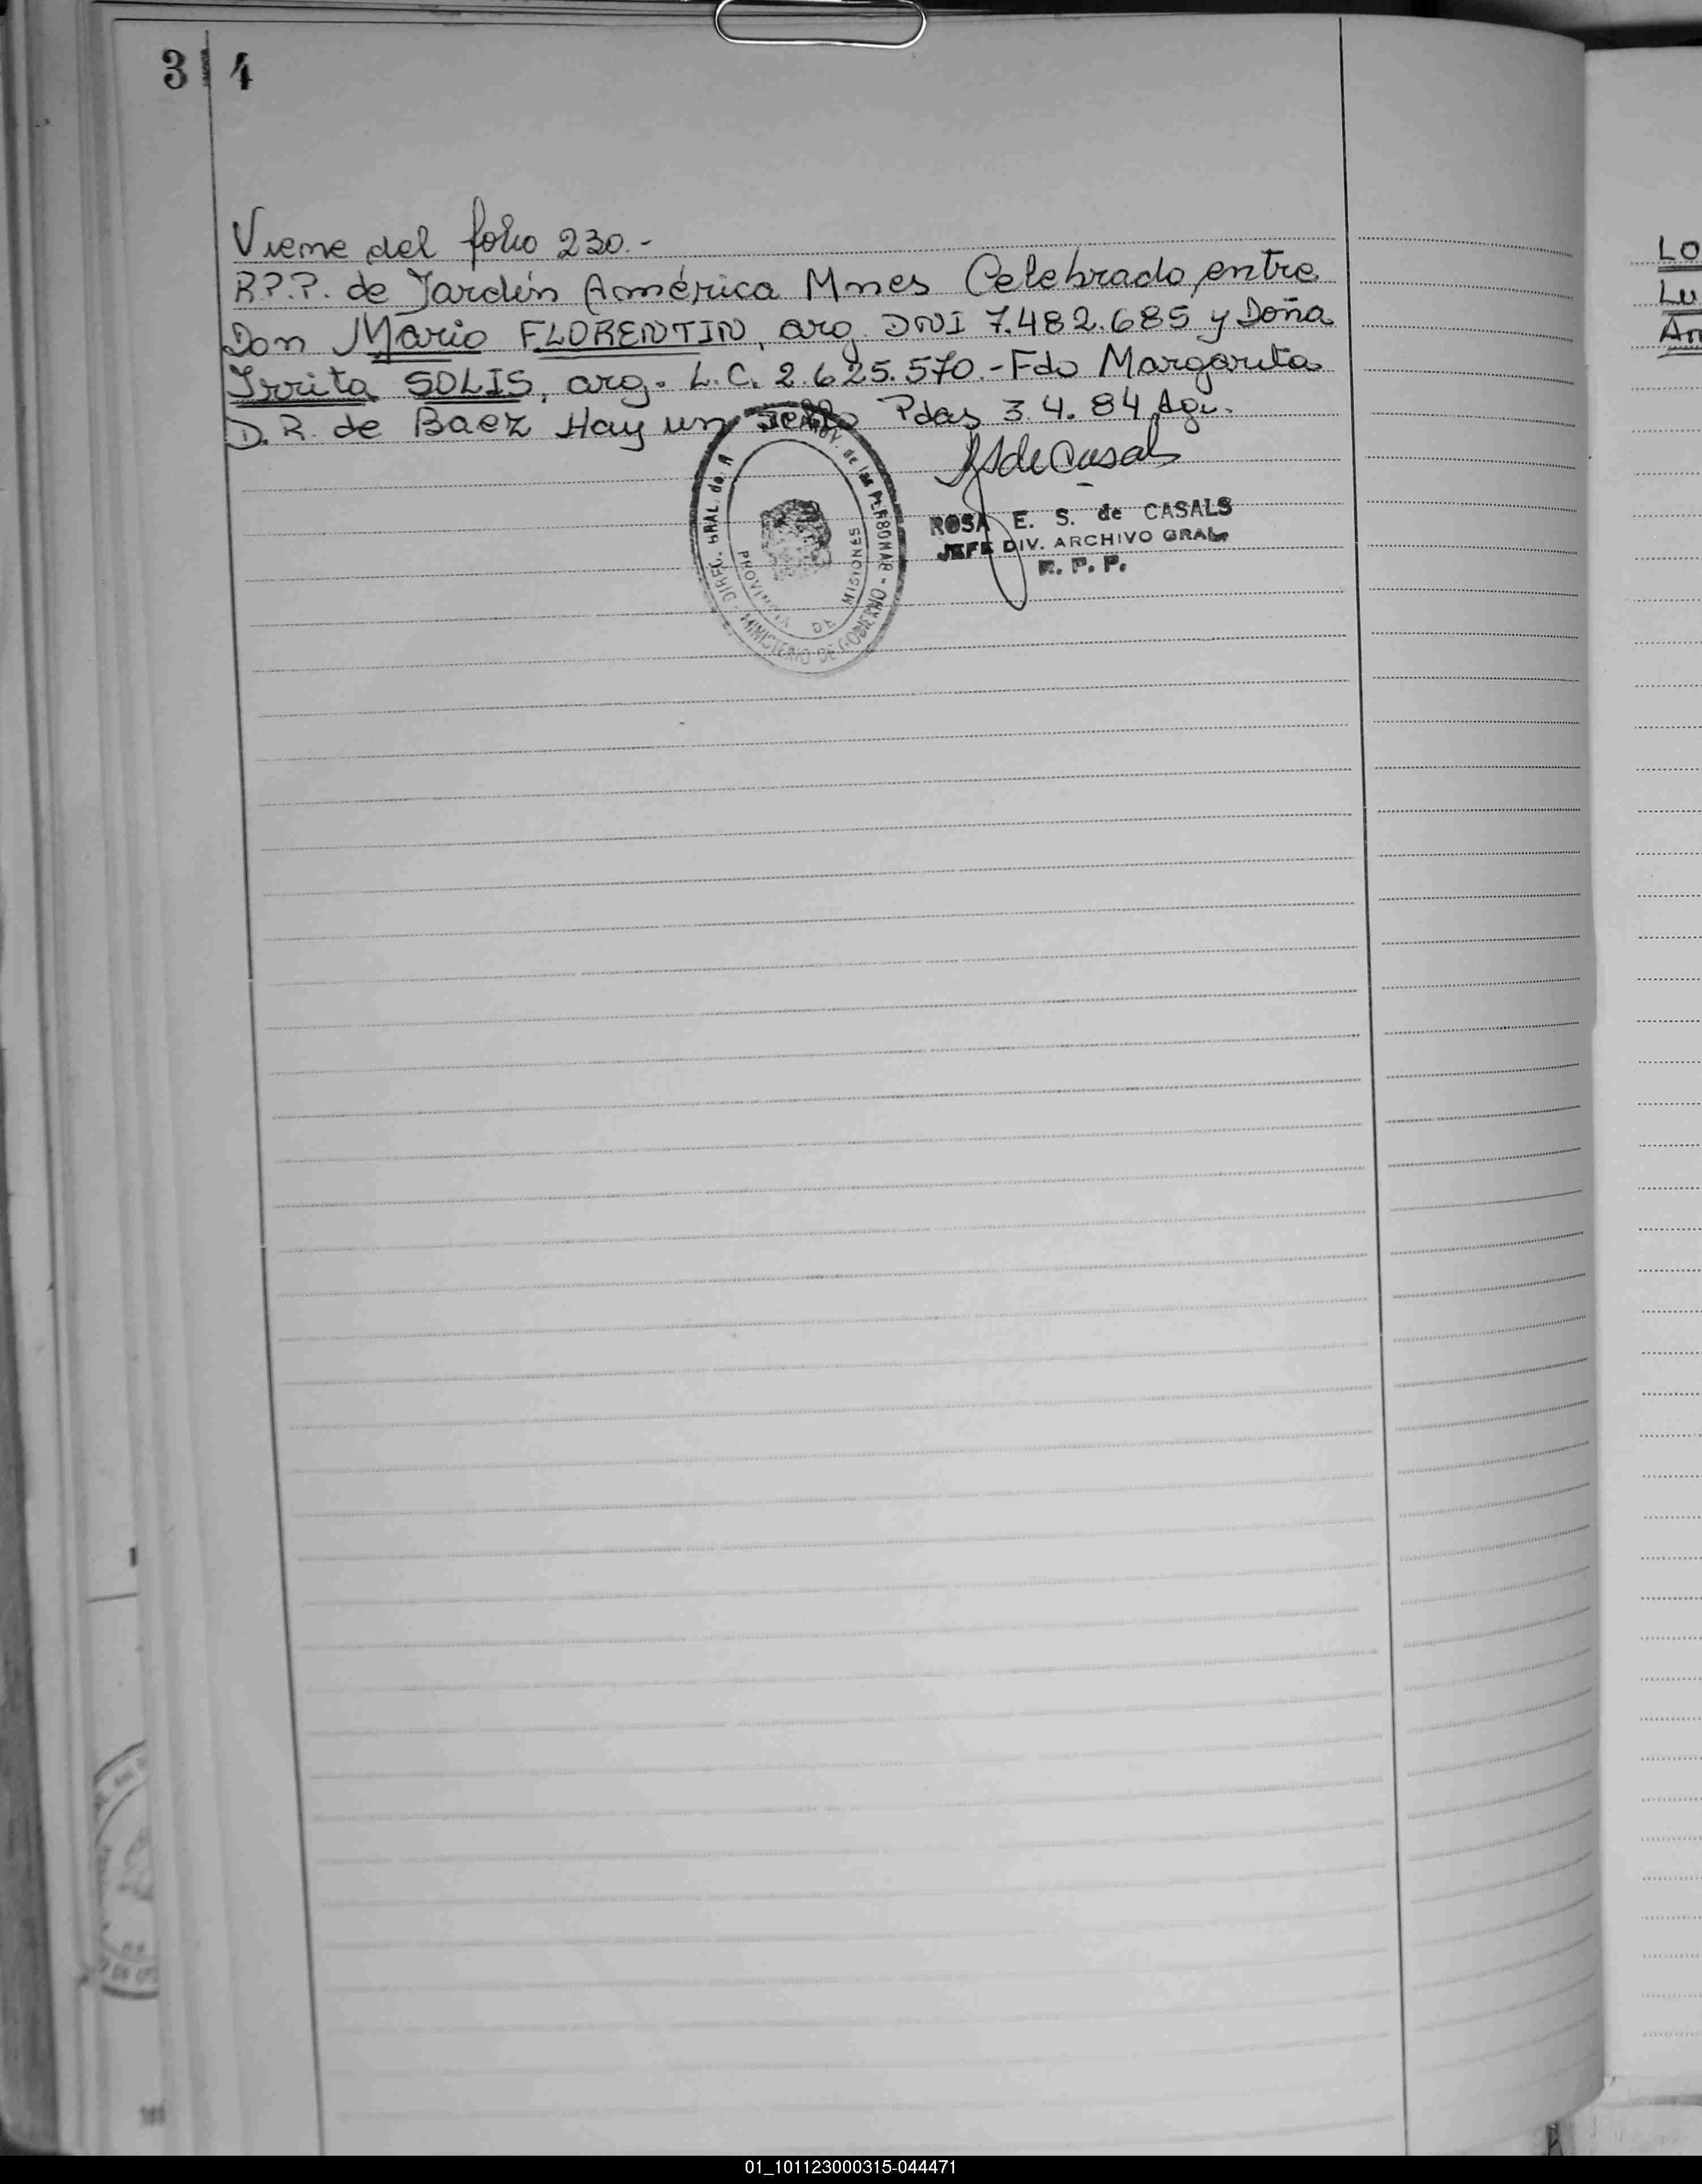 3 4
Viene del folio 230.-
R.P.P. de Jardín América Mnes Celebrado, entre
Don Mario FLORENTIN, arg. DNI 7.482.685 y Doña
Irrita SOLIS, arg. L.C. 2.625.570.- Fdo Margarita
D.R. de Baez Hay un sello Pdas 3.4.84
ROSA E. S. de CASALS
JEFE DIV. ARCHIVO GRAL.
R. P. P.
DIREC. GRAL. de de las PERSONAS - MINISTERIO DE GOBIERNO -
PROVINCIA DE MISIONES
LO
Lu
01_101123000315-044471